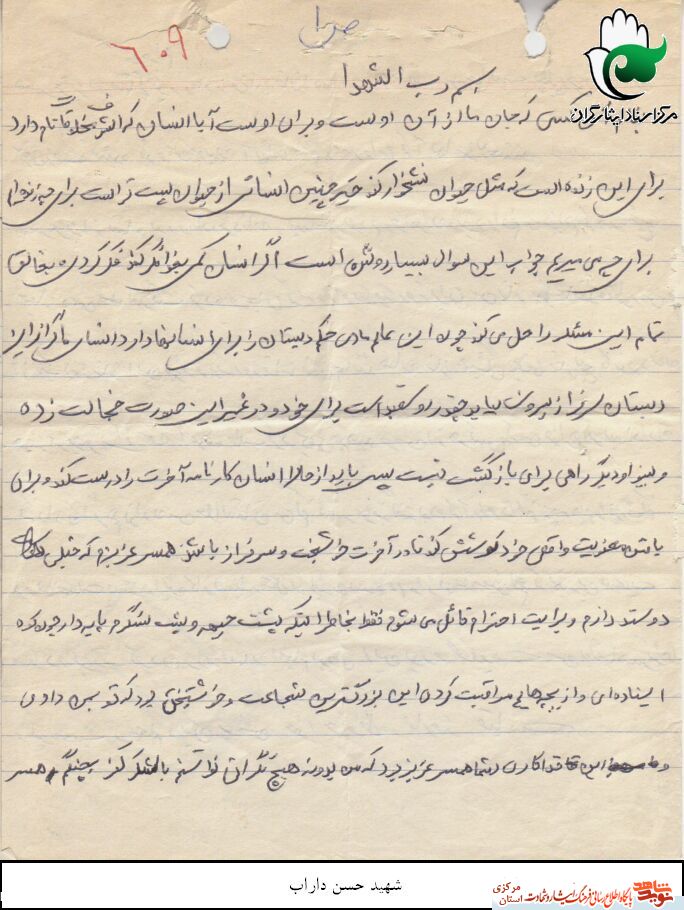 ۶۰۹
بسم رب الشهدا
مرکز اسناد ایثارگران
کسی که جان ما از آن اوست و برای اوست آیا انسان که اشرف مخلوقات نام دارد
برای این زنده است که مثل حیوان نشخوار کند خیر چنین انسانی از حیوان پست تر است برای چه زنده‌ام
برای چه می میریم جواب این سوال بسیار روشن است اگر انسان کمی بخود فکر کند فکر کردن بخالق
تمام این مسئله را حل می کند چون این عالم مادی حکم دبستان را برای انسانها دارد انسان ما اگر از این
دبستان سرفراز بیرون بیاید چقدر رو سفید است برای خود و در غیر این صورت خجالت زده
و دیگر راهی برای بازگشت نیست پس باید از حالا انسان کارنامه آخرت را درست کند و برای
واقعی خود کوشش کند تا در آخرت خوشبخت و سرفراز باشد همسر عزیزم که خیلی
دوستت دارم و برایت احترام قائل می شوم فقط بخاطر اینکه پشت جبهه و پشت سنگرم پایدار چون کوه
ایستاده‌ای و از بچه‌هایم مراقبت کردی این بزرگترین شجاعت و خوشبختی بود که تو بمن دادی
و این فداکاری شما همسر عزیز بود که من بدون هیچ نگرانی توانستم با لشکر کفر بجنگم همسر
شهید حسن داراب
نوید شاهد
پایگاه اطلاع رسانی فرهنگ ایثار و شهادت
استان مرکزی